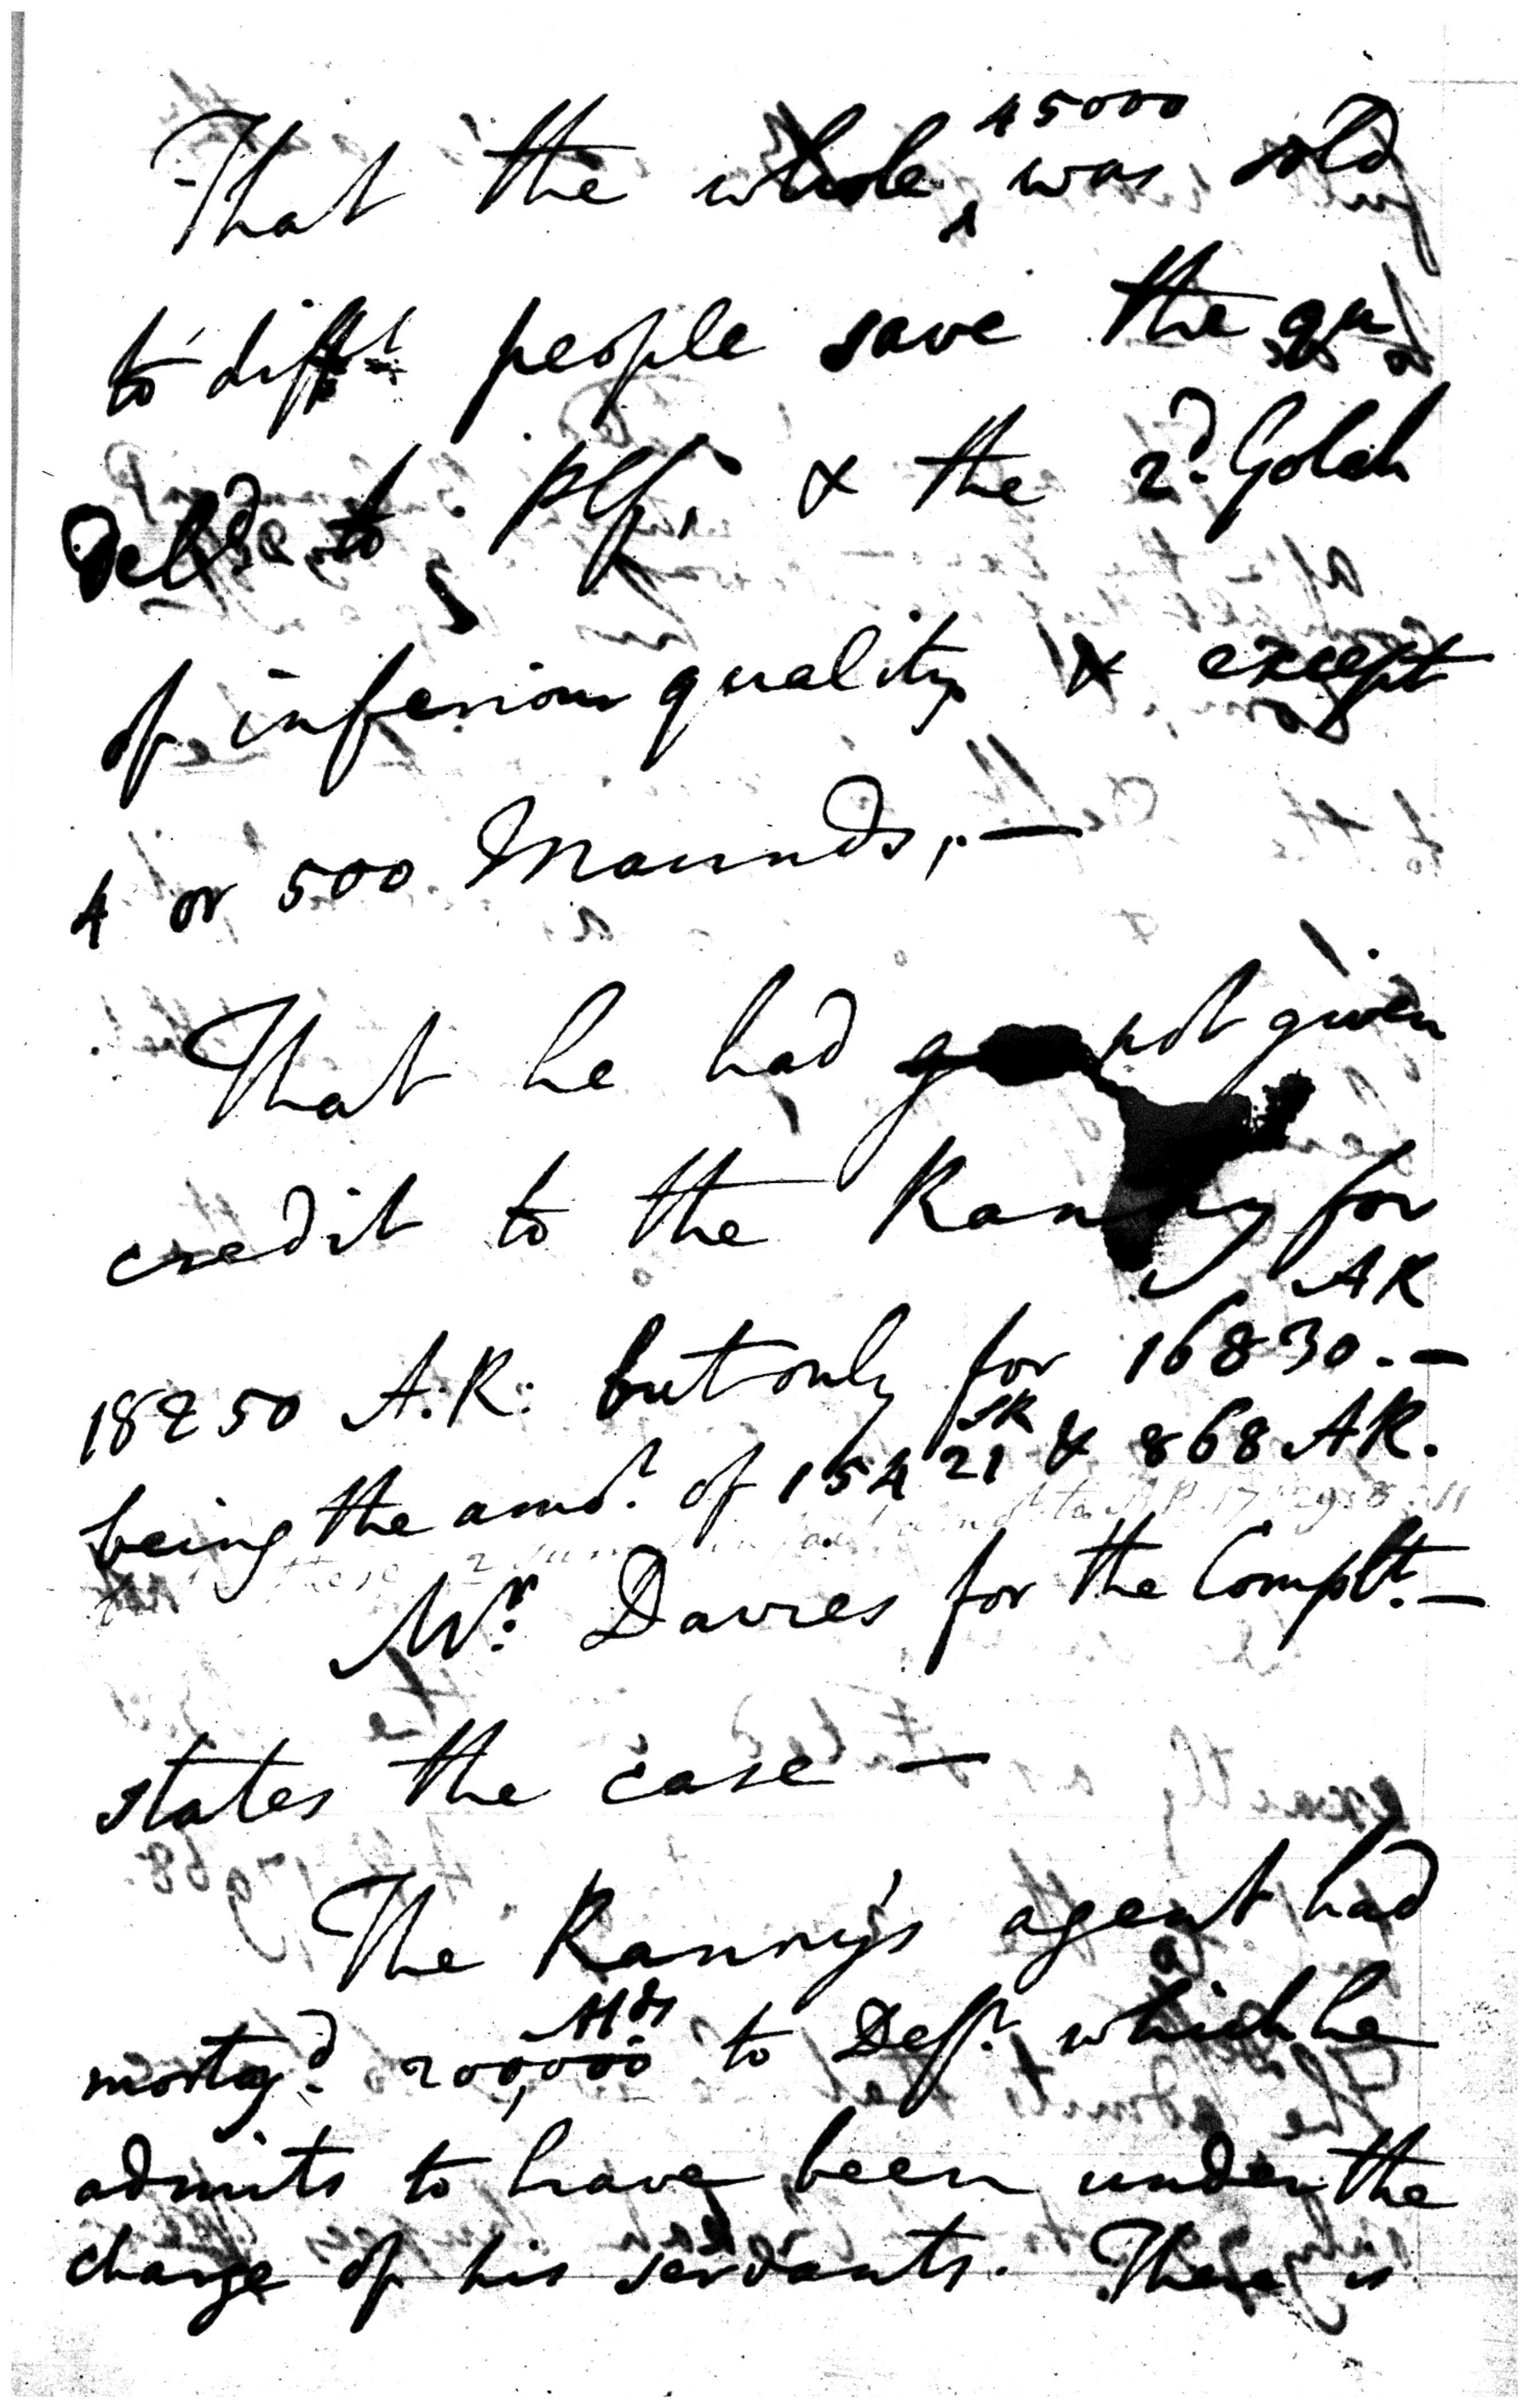 That the whole 45000 was sold
to diff.t people save the qu
Dell.d to Plff. & the 2.d Golah
of inferiour quality & except
4 or 500 Maunds, —
That he had not given
credit to the Ranny for
18250 A.R. but only for 16830 AR. —
being the amo.t of 15421 SR & 868 AR.
these 2 sums
Mr. Davies for the Complt. —
states the case —
The Ranny's agent had
mortg.d 200,000 Mds to Deft. which he
admits to have been under the
charge of his servants. There is